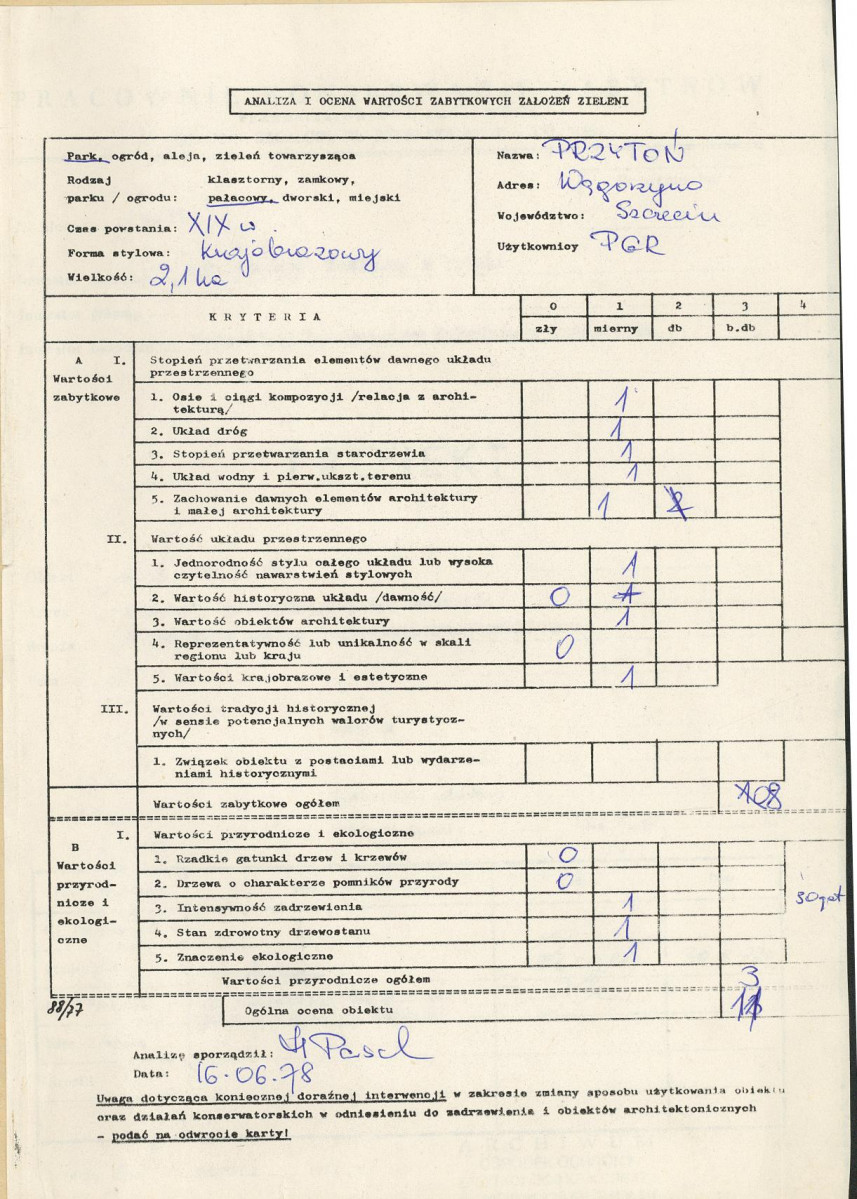 ANALIZA I OCENA WARTOŚCI ZABYTKOWYCH ZAŁOŻEŃ ZIELENI
Park, ogród, aleja, zieleń towarzysząca
Rodzaj klasztorny, zamkowy,
parku / ogrodu: pałacowy, dworski, miejski
Czas powstania: XIX w.
Forma stylowa: Krajobrazowy
Wielkość: 2,1 ha
Nazwa: PRZYTOŃ
Adres: Węgorzyno
Województwo: Szczecin
Użytkownicy PGR
KRYTERIA
0 1 2 3 4
zły mierny db b.db
A I. Stopień przetwarzania elementów dawnego układu
przestrzennego
Wartości
zabytkowe
1. Osie i ciągi kompozycji /relacja z archi-
tekturą/ 1
2. Układ dróg 1
3. Stopień przetwarzania starodrzewia 1
4. Układ wodny i pierw.ukszt.terenu 1
5. Zachowanie dawnych elementów architektury
i małej architektury 1 2
II. Wartość układu przestrzennego
1. Jednorodność stylu całego układu lub wysoka
czytelność nawarstwień stylowych 1
2. Wartość historyczna układu /dawność/ 0 1
3. Wartość obiektów architektury 1
4. Reprezentatywność lub unikalność w skali
regionu lub kraju 0
5. Wartości krajobrazowe i estetyczne 1
III. Wartości tradycji historycznej
/w sensie potencjalnych walorów turystycz-
nych/
1. Związek obiektu z postaciami lub wydarze-
niami historycznymi
Wartości zabytkowe ogółem 8
B I. Wartości przyrodnicze i ekologiczne
Wartości
przyrod-
nicze i
ekologi-
czne
1. Rzadkie gatunki drzew i krzewów 0
2. Drzewa o charakterze pomników przyrody 0
30 gat
3. Intensywność zadrzewienia 1
4. Stan zdrowotny drzewostanu 1
5. Znaczenie ekologiczne 1
Wartości przyrodnicze ogółem 3
88/77
Ogólna ocena obiektu 11
Analizę sporządził:
Data: 16.06.78
Uwaga dotycząca koniecznej doraźnej interwencji w zakresie zmiany sposobu użytkowania obiektu
oraz działań konserwatorskich w odniesieniu do zadrzewienia i obiektów architektonicznych
- podać na odwrocie karty!